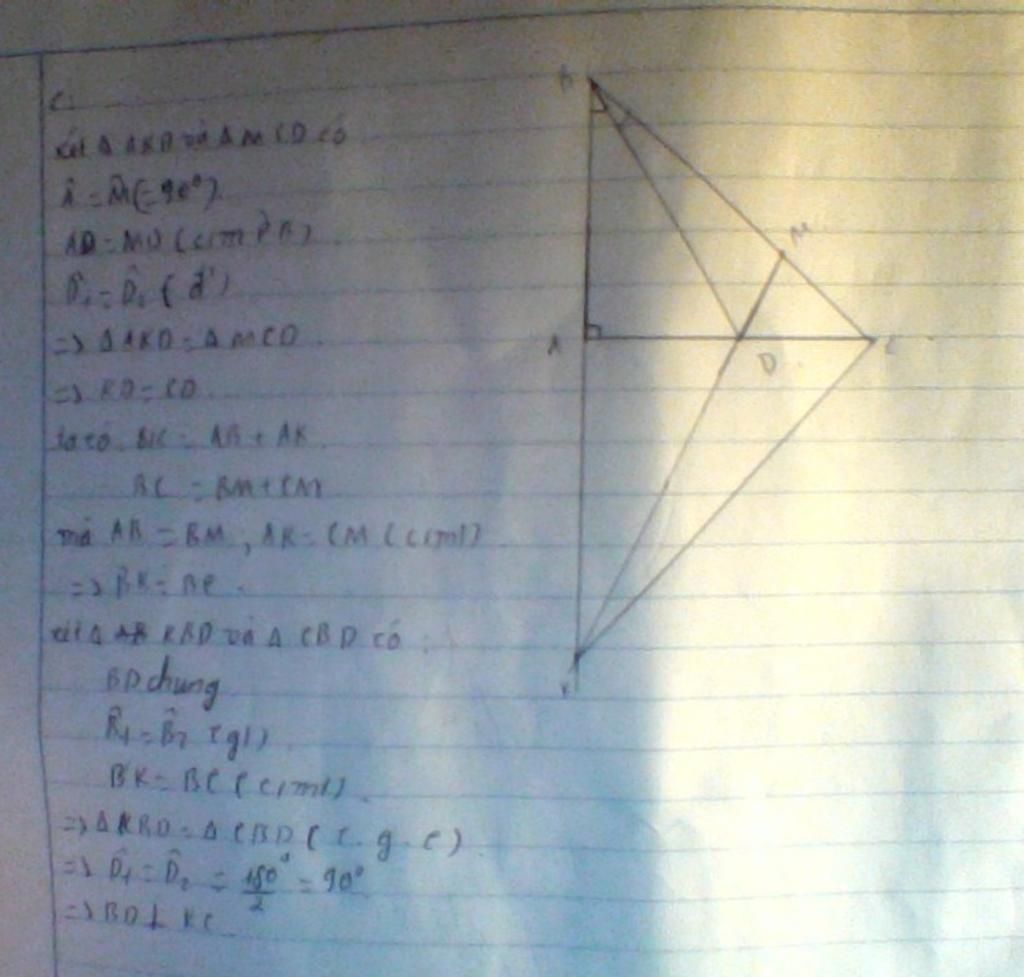 c.
xét Δ AKD và Δ MCD có
Â = M̂ (=90°)
AD = MD (cmt)
D̂₁ = D̂₂ (đ²)
=> Δ AKD = Δ MCD.
=> KD = CD.
ta có. BK = AB + AK
BC = BM + CM
mà AB = BM, AK = CM (cmt)
=> BK = BC.
xét Δ KBD và Δ CBD có :
BD chung
B̂₁ = B̂₂ (gt)
BK = BC (cmt).
=> Δ KBD = Δ CBD (c.g.c)
=> D̂₁ = D̂₂ = 180°/2 = 90°
=> BD ⊥ KC
B
M
A
D
C
K